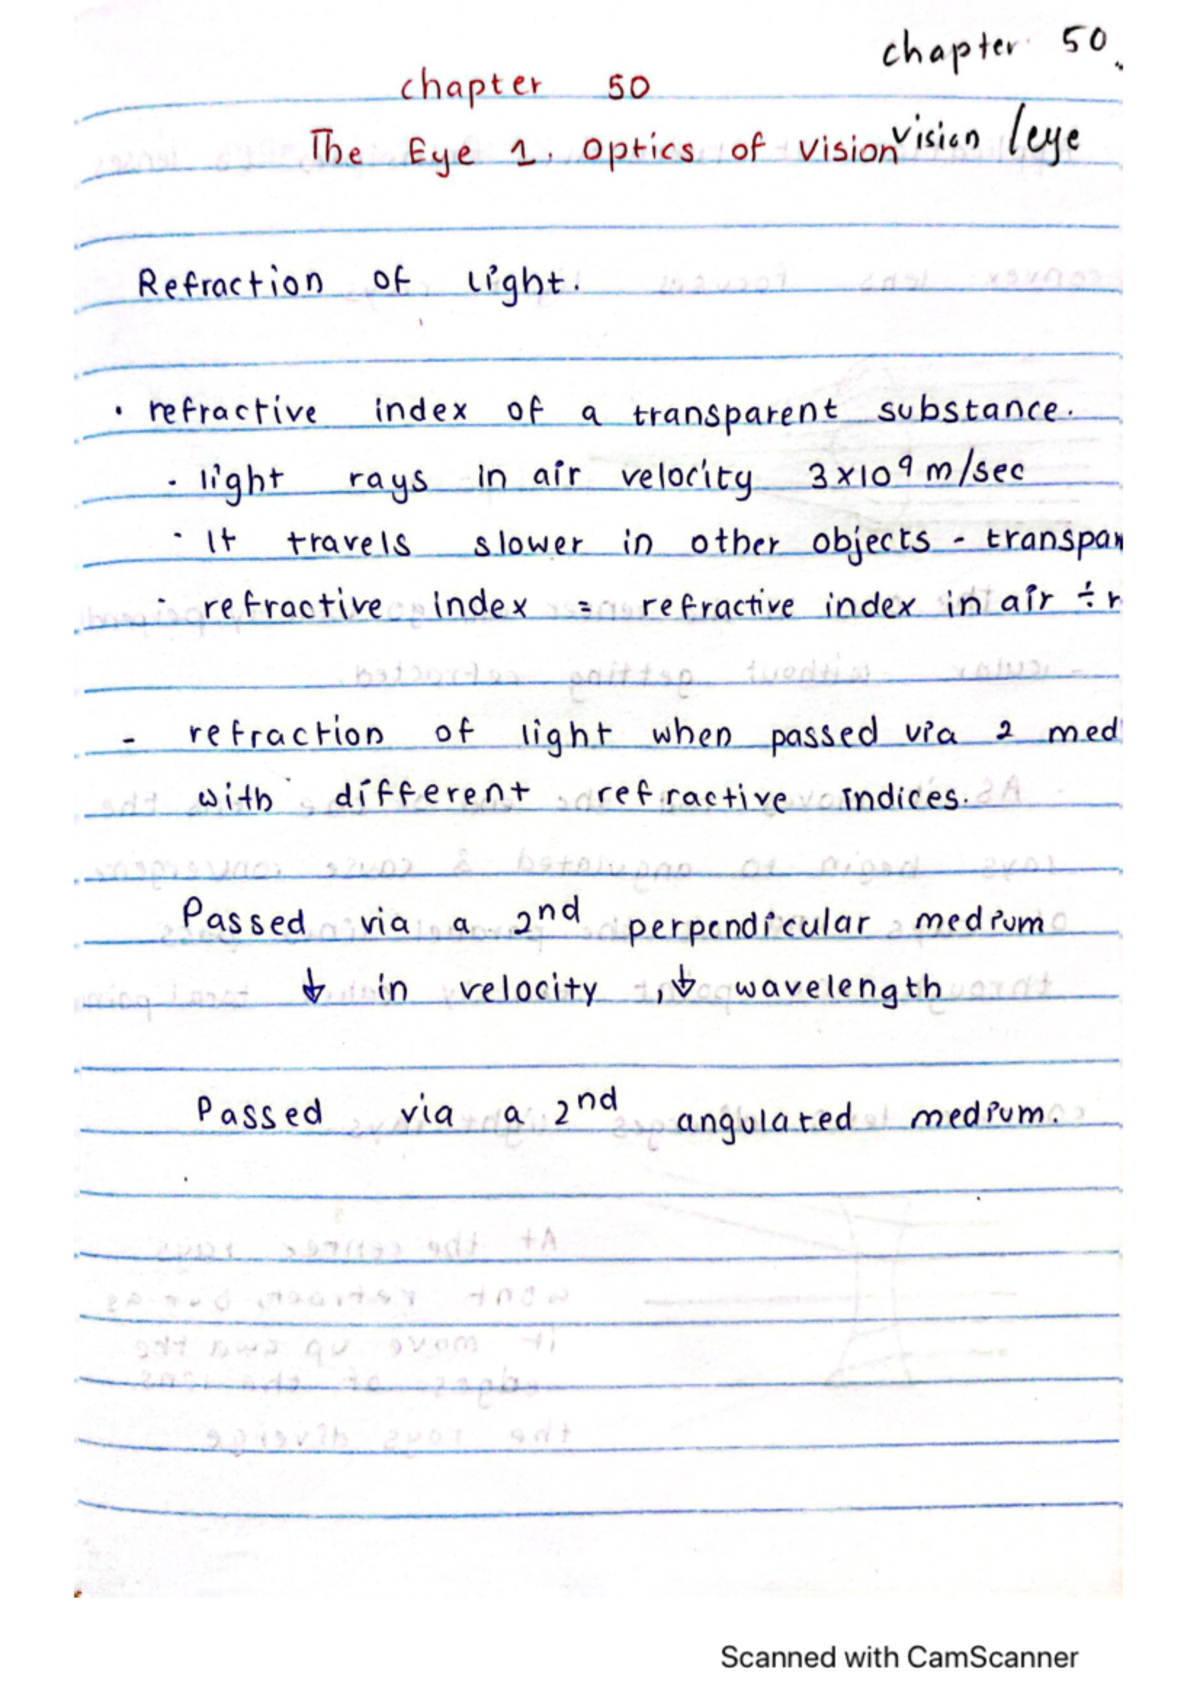 chapter 50
chapter 50
The Eye 1. Optics of vision
vision / eye
Refraction of light.
· refractive index of a transparent substance.
· light rays in air velocity 3x10⁹ m/sec
· It travels slower in other objects - transpar
· refractive index = refractive index in air ÷ r
- refraction of light when passed via 2 med
with different refractive indices.
Passed via a 2nd perpendicular medium
↓ in velocity, ↓ wavelength
Passed via a 2nd angulated medium.
Scanned with CamScanner